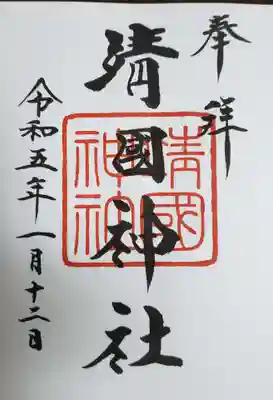 奉拝
清國神社
清國
神社
令和五年一月十二日